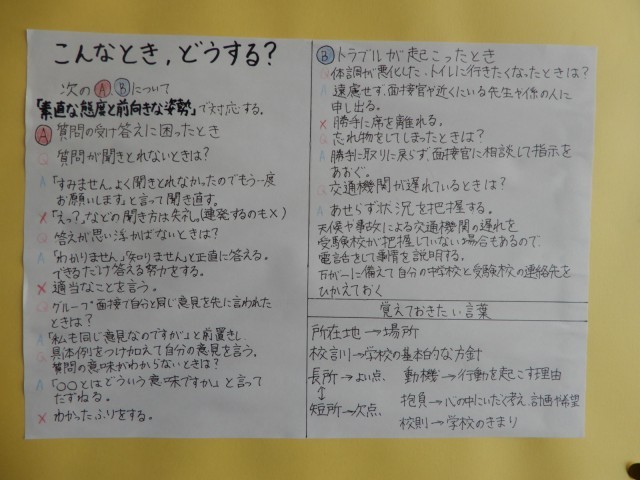 こんなとき,どうする?
次のⒶⒷについて
「素直な態度と前向きな姿勢」で対応する。
Ⓐ質問の受け答えに困ったとき
Q 質問が聞きとれないときは?
A「すみません。よく聞きとれなかったのでもう一度
お願いします。」と言って聞き直す。
×「えっ?」などの聞き方は失礼。(連発するのも×)
Q 答えが思い浮かばないときは?
A「わかりません」「知りません」と正直に答える。
できるだけ答える努力をする。
× 適当なことを言う。
Q グループ面接で自分と同じ意見を先に言われた
ときは?
A「私も同じ意見なのですが」と前置きし、
具体例をつけ加えて自分の意見を言う。
Q 質問の意味がわからないときは?
A「○○とはどういう意味ですか。」と言って
たずねる。
× わかったふりをする。
Ⓑトラブルが起こったとき
Q 体調が悪化した、トイレに行きたくなったときは?
A 遠慮せず、面接官や近くにいる先生や係の人に
申し出る。
× 勝手に席を離れる。
Q 忘れ物をしてしまったときは?
A 勝手に取りに戻らず、面接官に相談して指示を
あおぐ。
Q 交通機関が遅れているときは?
A あせらず状況を把握する。
天候や事故による交通機関の遅れを
受験校が把握していない場合もあるので、
電話をして事情を説明する。
万が一に備えて自分の中学校と受験校の連絡先を
ひかえておく
覚えておきたい言葉
所在地→場所
校訓→学校の基本的な方針
長所→よい点 動機→行動を起こす理由
↕
短所→欠点 抱負→心の中にいだく考え、計画や希望
校則→学校のきまり